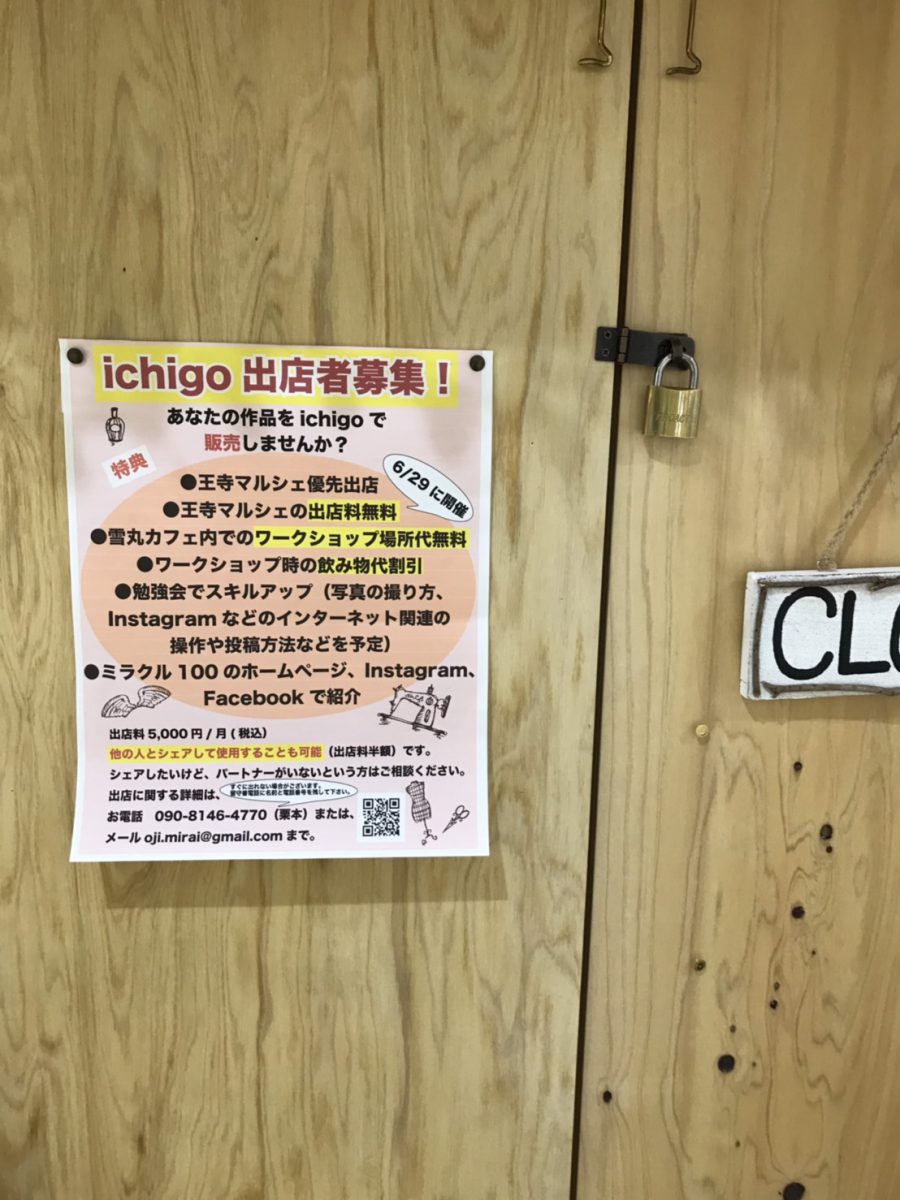 ichigo 出店者募集！
あなたの作品を ichigo で
販売しませんか？
特典
6/29 に開催
●王寺マルシェ優先出店
●王寺マルシェの出店料無料
●雪丸カフェ内でのワークショップ場所代無料
●ワークショップ時の飲み物代割引
●勉強会でスキルアップ（写真の撮り方、
Instagram などのインターネット関連の
操作や投稿方法などを予定）
●ミラクル 100 のホームページ、Instagram、
Facebook で紹介
出店料 5,000 円 / 月 ( 税込)
他の人とシェアして使用することも可能（出店料半額）です。
シェアしたいけど、パートナーがいないという方はご相談ください。
出店に関する詳細は、
すぐに出れない場合がございます。
留守番電話に名前と電話番号を残して下さい。
お電話　090-8146-4770（栗本）または、
メール oji.mirai@gmail.com まで。
CLO